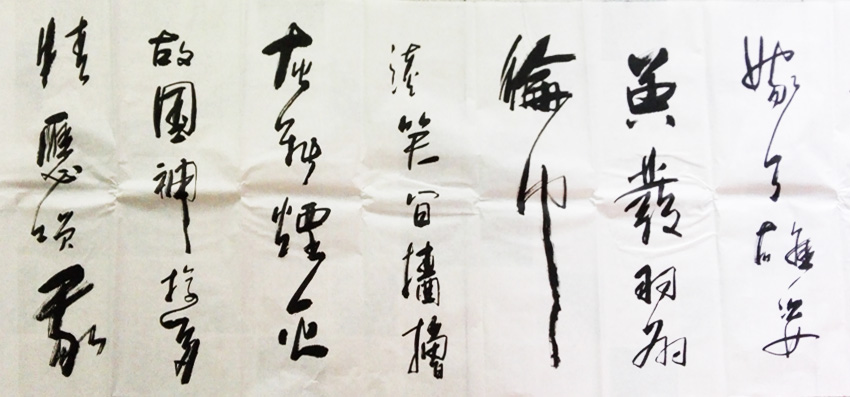 嫁了雄姿
英發羽扇
綸巾
談笑間檣櫓
灰飛煙滅
故國神遊多
情應笑我